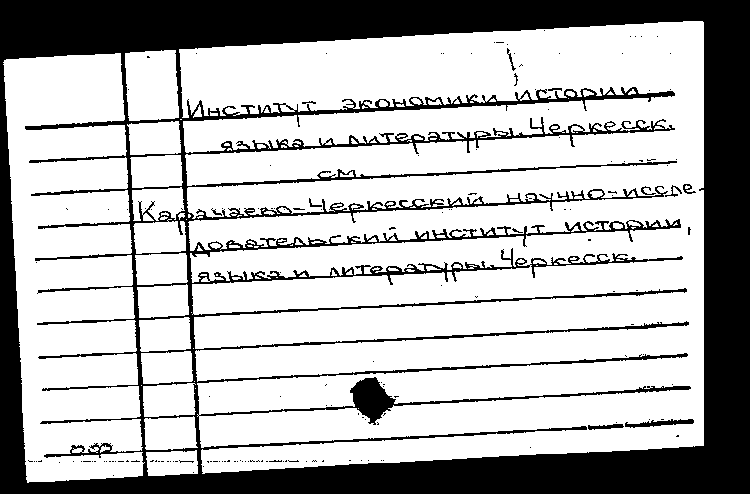 Институт экономики, истории,
языка и литературы. Черкесск.
см.
Карачаево-Черкесский научно-иссле-
довательский институт истории,
языка и литературы. Черкесск.